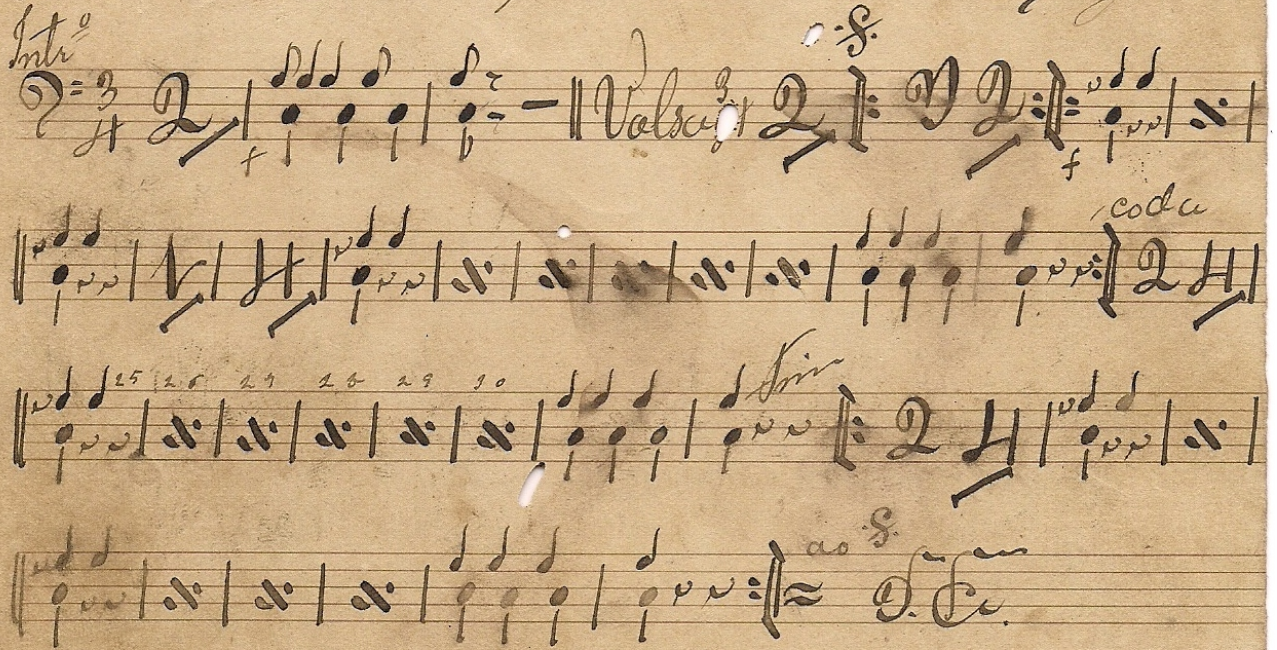 Intrº
3 4 2 f Valsa 3 4 2 2 f
coda
2 4
25 26 27 28 29 30 Fim
2 4
ao D.C.